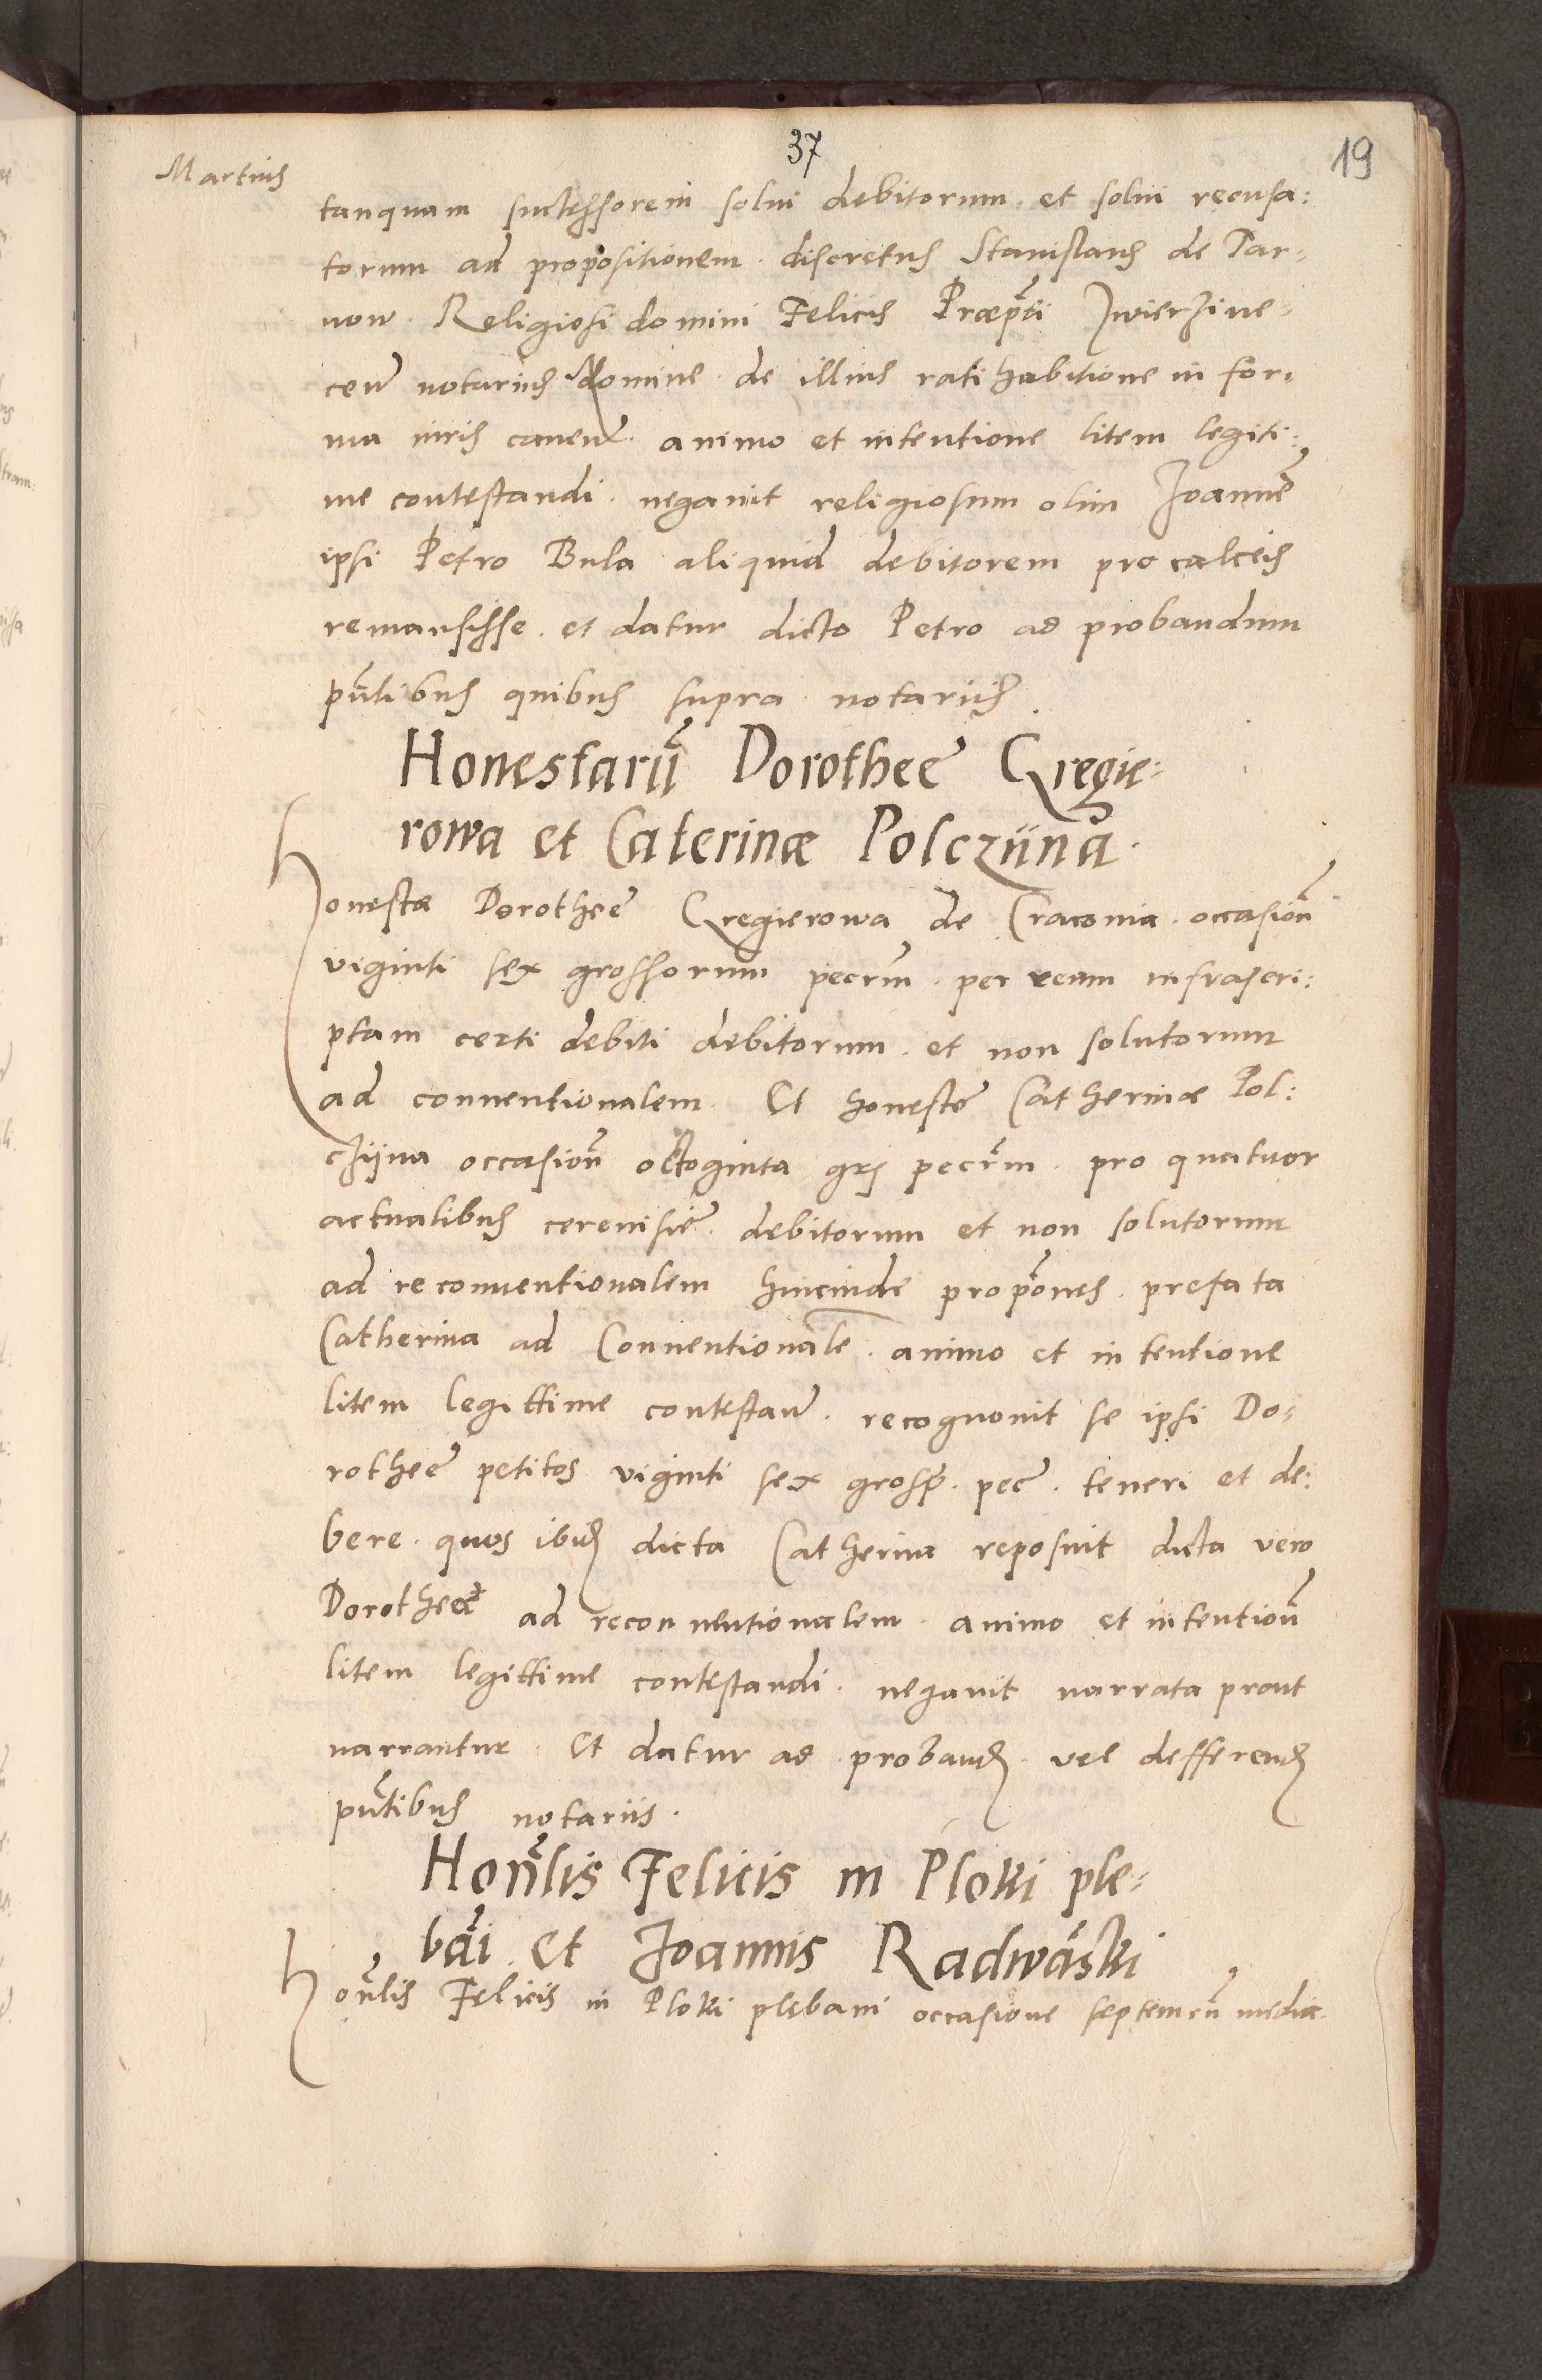 37
19
Martius
tanquam successorem solui debitorum et solui recusa:
torum ad propositionem discretus Stanislaus de Tar=
now Religiosi domini Felicis Præpti Zwierzine=
cen̄ notarius domine de illius ratihabitione in for=
ma iuris cauen̄ animo et intentione litem legiti:
me contestandi negauit religiosum olim Joannē
ipsi Petro Bula aliquid debitorem pro calceis
remansisse et datur dicto Petro ad probandum
pn̄tibus quibus supra notariis.
Honestarū Dorotheę Gregie=
rowa et Caterinæ Polcziinā.
Honestæ Dorotheę Gregierowa de Cracouia occasion̄
viginti sex grossorum pecr̄m per ream infrascri:
ptam certi debiti debitorum et non solutorum
ad conuentionalem. Et honestę Catherinæ Pol:
cziina occasion̄ octoginta grs pecr̄m pro quatuor
actualibus cereuisię debitorum et non solutorum
ad reconuentionalem hincinde propōnes prefata
Catherina ad Conuentionalē animo et intentione
litem legittime contestan̄ recognouit se ipsi Do=
rotheę petitos viginti sex gross pec̄ teneri et de:
bere quos ibid dicta Catherina reposuit dicta vero
Dorothea ad reconuentionalem animo et intention̄
litem legittime contestandi negauit narrata prout
narrantur Et datur ad proband vel defferend
pn̄tibus notariis.
Honr̄lis Felicis in Ploki ple=
bāi et Joannis Radwāski
Honr̄lis Felicis in Ploki plebani occasione septem cū media